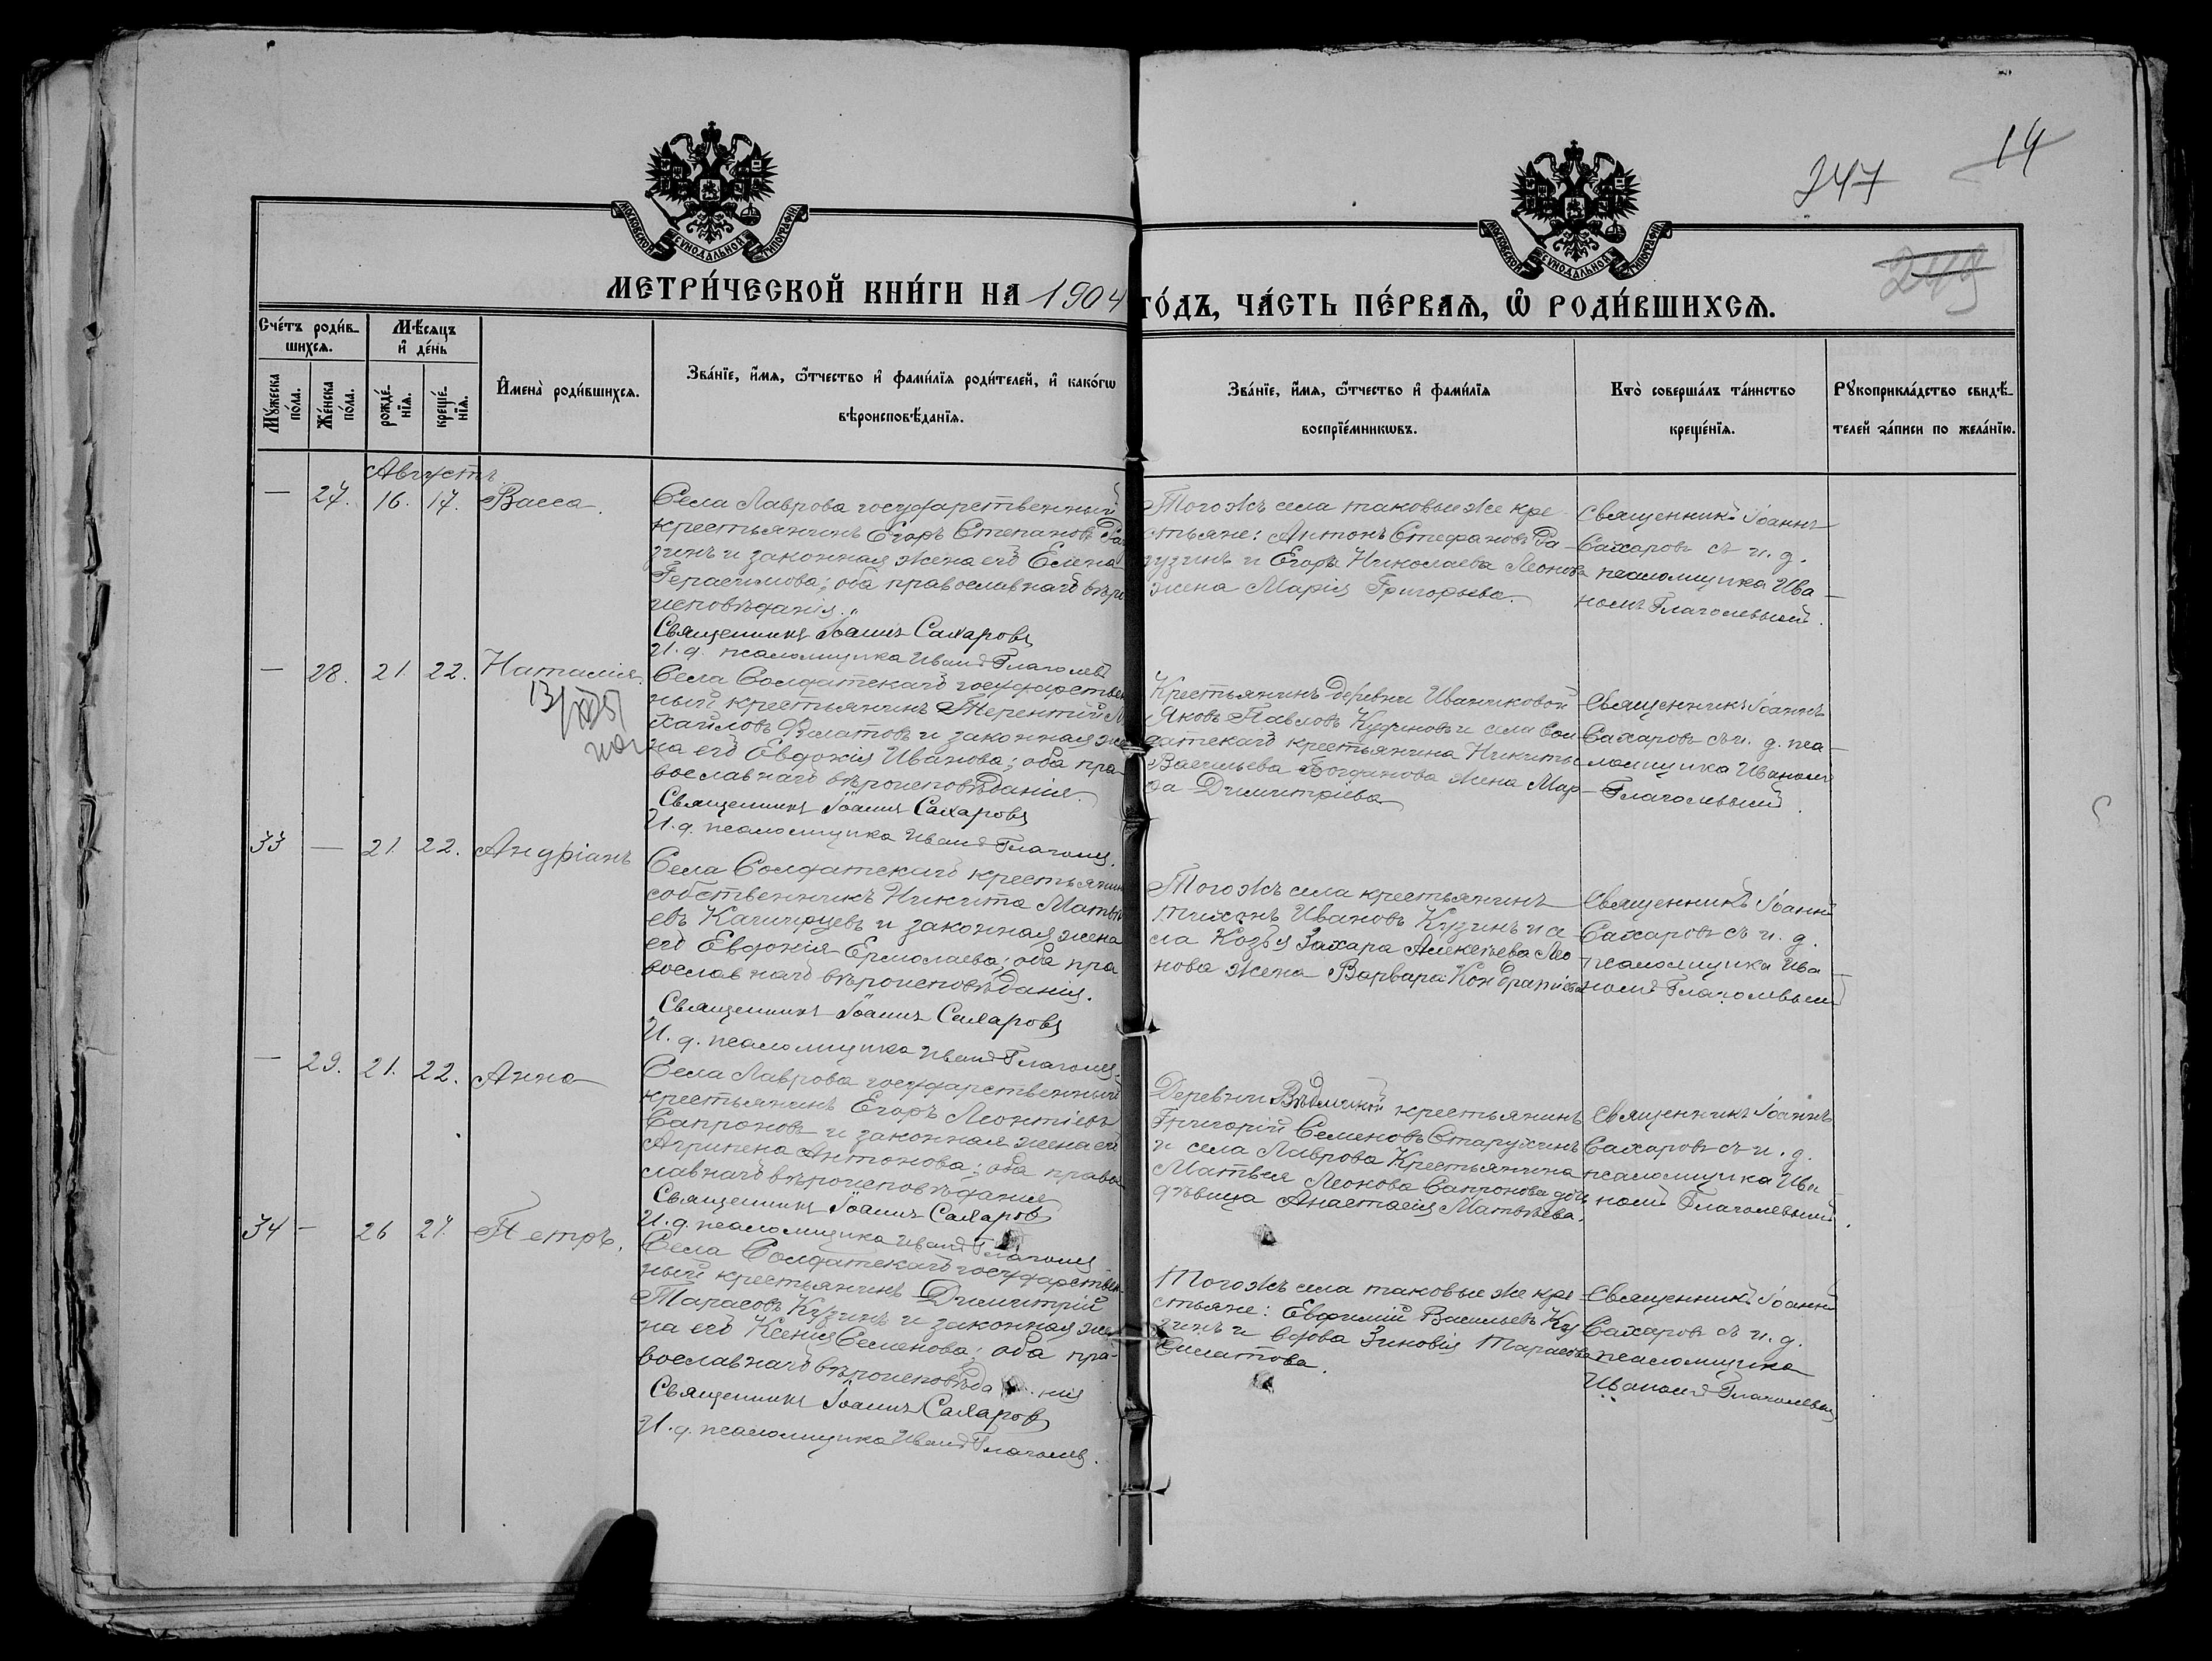 14
247
249
МОСКОВСКОЙ СѴНОДАЛЬНОЙ ТИПОГРАФІИ
МОСКОВСКОЙ СѴНОДАЛЬНОЙ ТИПОГРАФІИ
МЕТРИ́ЧЕСКОЙ КНИ́ГИ НА 1904
ГО́ДЪ, ЧА́СТЬ ПЕ́РВАѦ, Ѽ РОДИ́ВШИХСѦ.
Сче́тъ роди́в-
шихсѧ.
Мѣ́сѧцъ
и҆ де́нь
Мꙋ́жеска
по́ла.
Же́нска
по́ла.
рожде́-
нїѧ.
креще́-
нїѧ.
И҆мена̀ роди́вшихсѧ.
Зва́нїе, и҆́мѧ, ѻ҆́тчество и҆ фами́лїѧ роди́телей, и҆ како́гѡ
вѣроисповѣ́данїѧ.
Зва́нїе, и҆́мѧ, ѻ҆́тчество и҆ фами́лїѧ
воспрїе́мникѡвъ.
Кто̀ соверша́лъ та́инство
креще́нїѧ.
Рꙋкоприкла́дство свидѣ́-
телей за́писи по жела́нїю.
Августъ
— 27. 16. 17. Васса.
Села Лаврова государственный
крестьянинъ Егоръ Степановъ
зинъ и законная жена его Елена
Герасимова; оба православнаго вѣро
исповѣданія.
Священникъ Іоаннъ Сахаровъ
И. д. псаломщика Иванъ Глаголевъ
Тогожъ села таковые же кре
стьяне: Антонъ Стефановъ Ра-
гузинъ и Егора Николаева Леонова
жена Марія Григорьева.
Священникъ Іоаннъ
Сахаровъ съ и. д.
псаломщика Ива-
номъ Глаголевымъ.
— 28. 21. 22. Наталія.
Села Солдатскаго государствен
ный крестьянинъ Терентій М
хайловъ Филатовъ и законная же
на его Евдокія Иванова; оба пра-
вославнаго вѣроисповѣданія.
Священникъ Іоаннъ Сахаровъ
И. д. псаломщика Иванъ Глаголевъ.
Крестьянинъ деревни Иванчиковой
Яковъ Павловъ Кудиновъ и села Сол
датскаго крестьянина Никиты
Васильева Богданова жена Мар-
ѳа Димитріева
Священникъ Іоаннъ
Сахаровъ съ и. д. пса-
ломщика Иваномъ
Глаголевымъ.
33 — 21. 22. Андріанъ
Села Солдатскаго крестьянинъ
собственникъ Никита Матвѣ
евъ и законная жена
его Евдокія Ермолаева; оба пра
вославнаго вѣроисповѣданія.
Священникъ Іоаннъ Сахаровъ
И. д. псаломщика Иванъ Глаголевъ.
Тогожъ села крестьянинъ
Тихонъ Ивановъ Кузинъ и се
ла Козья Захара Алексѣева Лео
нова жена Варвара Кондратіева
Священникъ Іоаннъ
Сахаровъ съ и. д.
псаломщика Ива
номъ Глаголевымъ
— 29. 21. 22. Анна
Села Лаврова государственный
крестьянинъ Егоръ Леонтіевъ
Сапроновъ и законная жена его
Агрипена Антонова; оба право
славнаго вѣроисповѣданія
Священникъ Іоаннъ Сахаровъ
И. д. псаломщика Иванъ Глаголевъ
Деревни крестьянинъ
Григорій Семеновъ Старухинъ
и села Лаврова крестьянина
Матвея Леонова Сапронова дочь
дѣвица Анастасія Матвѣева.
Священникъ Іоаннъ
Сахаровъ съ и. д.
псаломщика Ива
номъ Глаголевымъ.
34 — 26 27. Петръ.
Села Солдатскаго государствен-
ный крестьянинъ Димитрій
Тарасовъ Кузинъ и законная же
на его Ксенія Семенова; оба пра-
вославнаго вѣроисповѣданія
Священникъ Іоаннъ Сахаровъ
И. д. псаломщика Иванъ Глаголевъ.
Тогожъ села таковые же кре
стьяне: Евфимій Васильевъ Ку
зинъ и вдова Зиновія Тарасова
Филатова.
Священникъ Іоаннъ
Сахаровъ съ и. д.
псаломщика
Иваномъ Глаголевым.